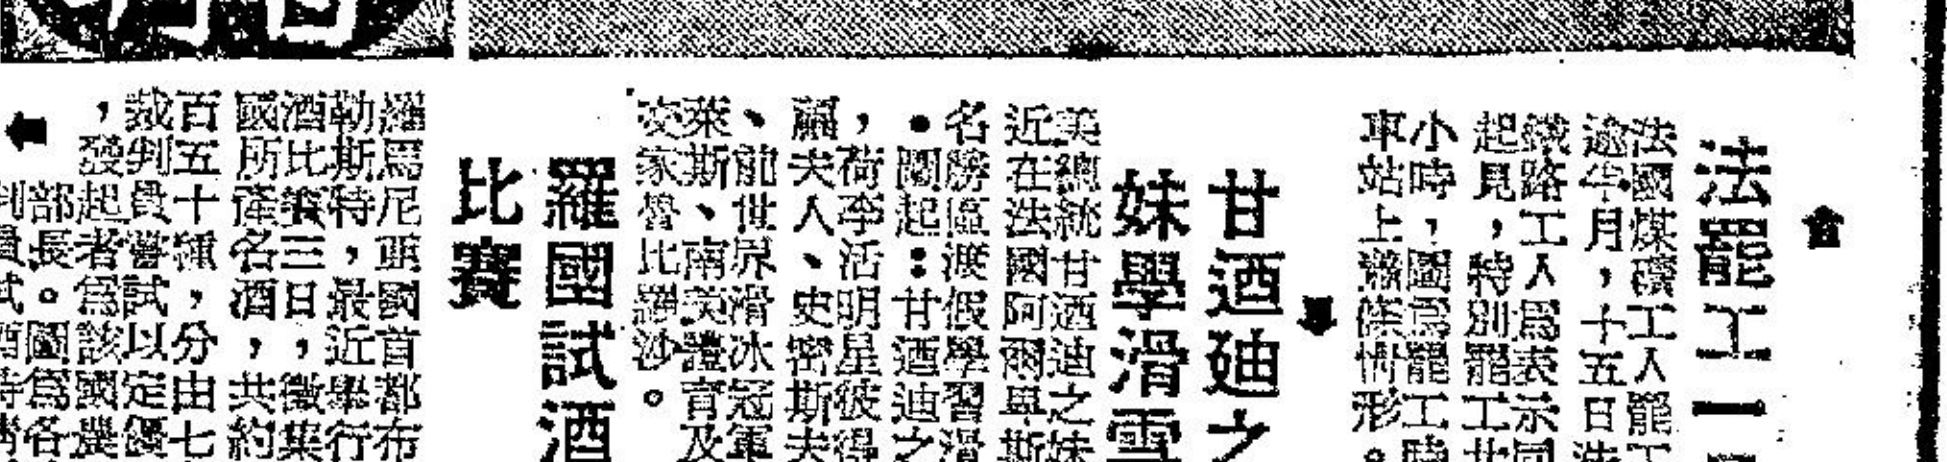 法罷工一
法國煤礦工人罷工
逾年月,十五日法
鐵路工人爲表示同
起見,特別罷工廿
小時,圖爲罷工時
車站上蕭條情形。
甘迺廸之
妹學滑雪
美總統甘迺迪之妹
近在法國阿爾卑斯
名勝區渡假學習滑
。圖起:甘迺迪之
,荷李活明星彼得
夫人、史密斯夫
、前世界滑冰冠軍
萊斯、南美體育及
交家魯比羅沙。
羅國試酒
比賽
羅馬尼亞國首都布
勒斯特,最近舉行
酒比賽三日,徵集
國所產名酒,共約
百五十種,分由七
裁判員嘗試以定優
,發起者爲該國農
部長。圖爲各
判員試酒時